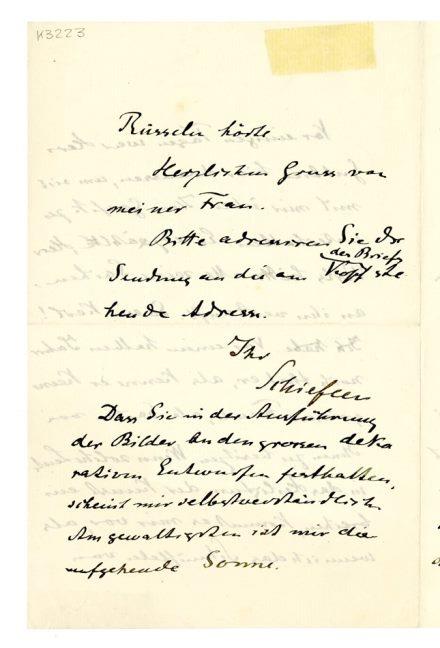 K3223
Brüsseln hörte.
Herzlichen Gruss von
meiner Frau.
Bitte adressiren Sie die
des Briefs
Sendung an die am Kopf ste
hende Adresse.
Ihr
Schiefler
Dass Sie in der Ausführung
der Bilder an den grossen deko
rativen Entwürfen festhalten,
scheint mir selbstverständlich.
Am gewaltigsten ist mir die
aufgehende Sonne.